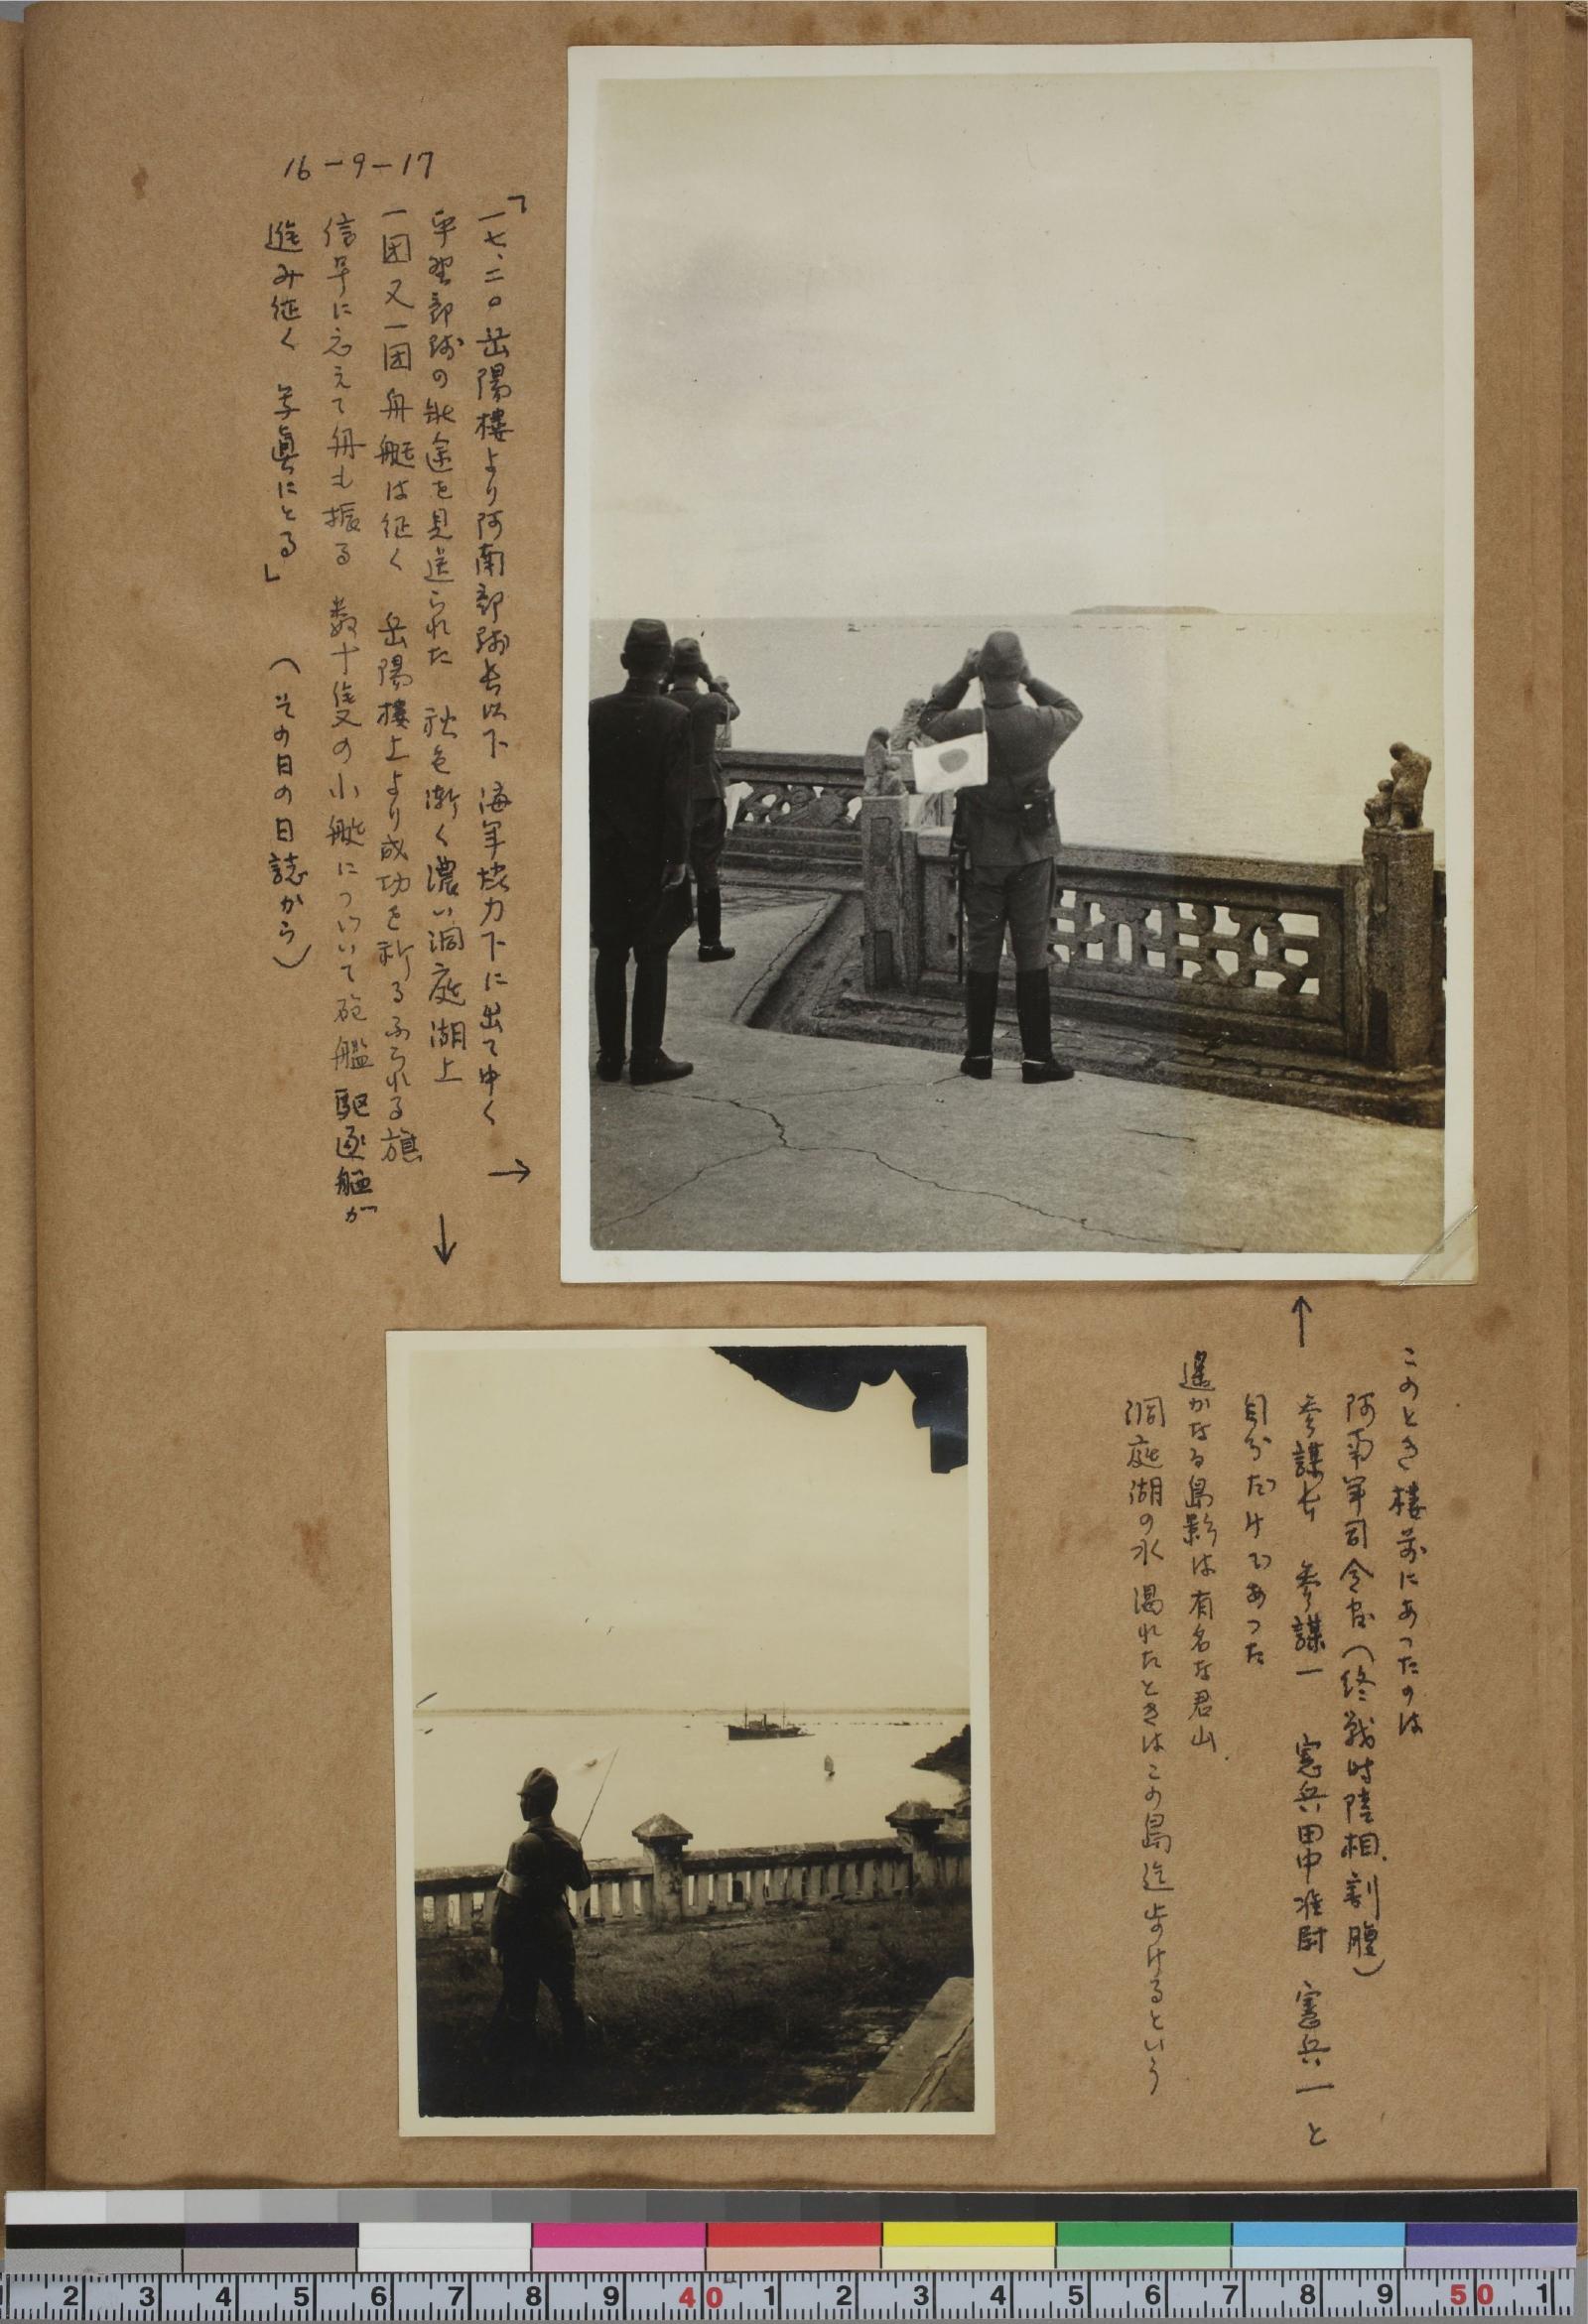 16-9-17
「一七、二〇岳陽樓より阿南部隊長以下 海軍協力下に出てゆく
平野部隊の壮途を見送られた 秋色漸く濃い洞庭湖上
一团又一团舟艇は征く 岳陽樓上より成功を祈るふられる旗
信号に応えて舟も振る 数十隻の小艇についいて砲艦駆逐艦が
進み征く 写眞にとる」 (その日の日誌から)
→
↓
↑
このとき樓前にあったのは
阿南軍司令官(終戦時陸相、割腹)
参謀長 参謀一 憲兵田中准尉 憲兵一 と
自分だけであった
遙かなる島影は有名な君山.
洞庭湖の水涸れたときはこの島迄歩けるという
2 3 4 5 6 7 8 9 40 1 2 3 4 5 6 7 8 9 50 1